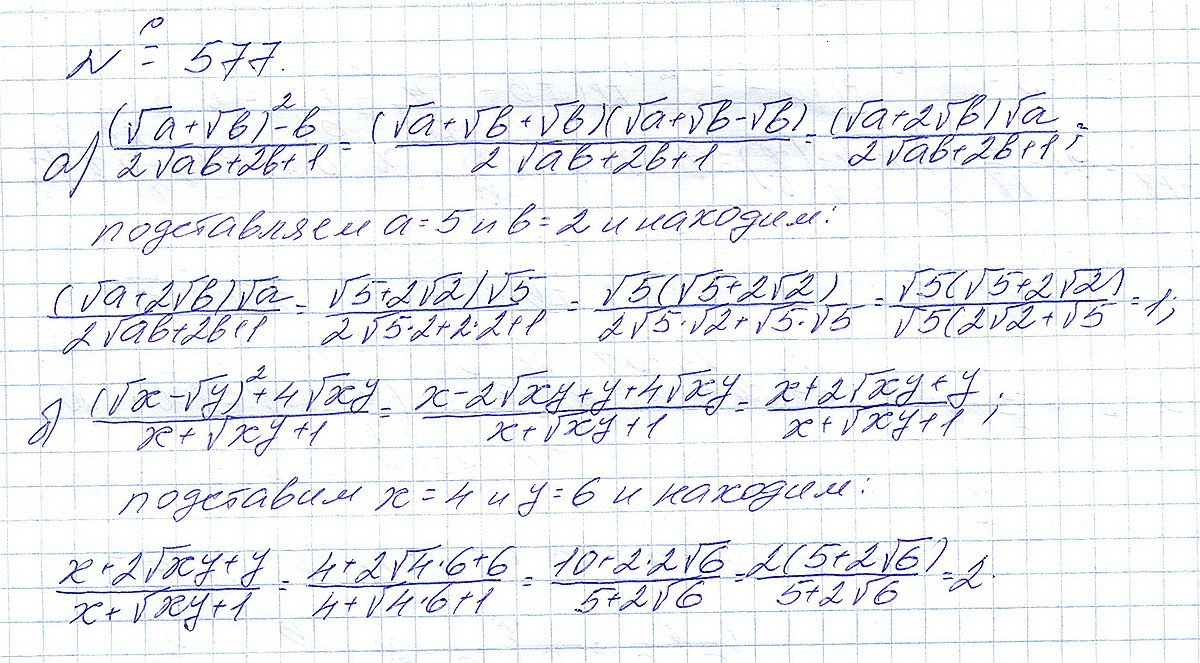 № 577.
а) ((√a+√b)²-b)/(2√ab+2b+1) = ((√a+√b+√b)(√a+√b-√b))/(2√ab+2b+1) = ((√a+2√b)√a)/(2√ab+2b+1) ; =
подставляем a=5 и b=2 и находим:
((√a+2√b)√a)/(2√ab+2b+1) = (√5+2√2)√5/(2√5·2+2·2+1) = (√5(√5+2√2))/(2√5·√2+√5·√5) = (√5(√5+2√2))/(√5(2√2+√5) = 1;
б) ((√x-√y)²+4√xy)/(x+√xy+1) = (x-2√xy+y+4√xy)/(x+√xy+1) = (x+2√xy+y)/(x+√xy+1) ;
подставим x=4 и y=6 и находим:
(x+2√xy+y)/(x+√xy+1) = (4+2√4·6+6)/(4+√4·6+1) = (10+2·2√6)/(5+2√6) = (2(5+2√6))/(5+2√6) = 2.